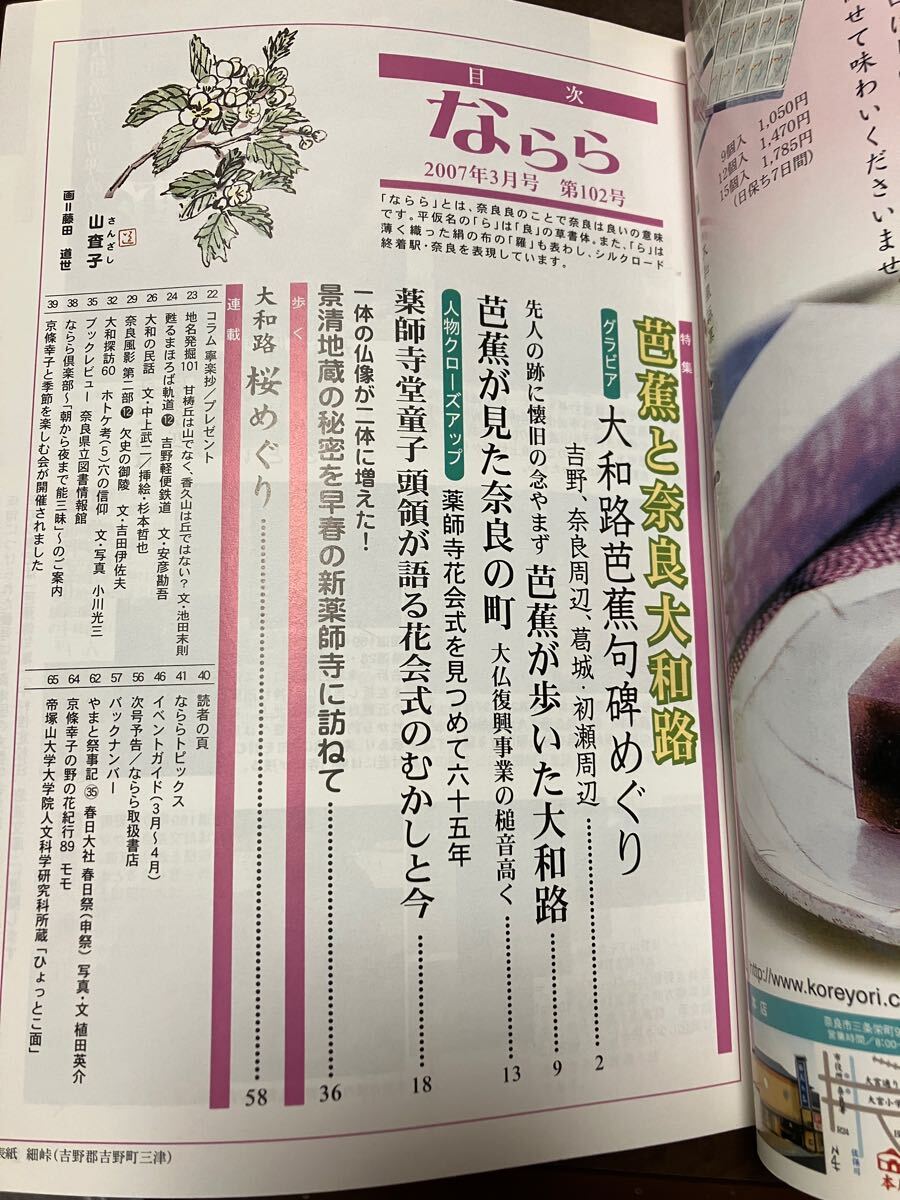 目次
ならら
2007年3月号 第102号
「ならら」とは、奈良良のことで奈良は良いの意味
です。平仮名の「ら」は「良」の草書体。また、「ら」は
薄く織った絹の布の「羅」も表わし、シルクロード
終着駅・奈良を表現しています。
山査子
さんざし
画=藤田 道世
特集
芭蕉と奈良大和路
グラビア
大和路芭蕉句碑めぐり
吉野、奈良周辺、葛城・初瀬周辺 2
先人の跡に懐旧の念やまず 芭蕉が歩いた大和路 9
芭蕉が見た奈良の町 大仏復興事業の槌音高く 13
人物クローズアップ
薬師寺花会式を見つめて六十五年
薬師寺堂童子 頭領が語る花会式のむかしと今 18
一体の仏像が二体に増えた!
景清地蔵の秘密を早春の新薬師寺に訪ねて 36
歩く
大和路 桜めぐり 58
連載
22 コラム 寧楽抄/プレゼント
23 地名発掘101 甘梼丘は山でなく、香久山は丘ではない? 文・池田末則
24 甦るまほろば軌道⑫ 吉野軽便鉄道 文・安彦勘吾
26 大和の民話 文・中上武二/挿絵・杉本哲也
29 奈良風影 第二部⑫ 欠史の御陵 文・吉田伊佐夫
32 大和探訪60 ホトケ考(5)穴の信仰 文・写真 小川光三
35 ブックレビュー 奈良県立図書情報館
38 ならら倶楽部~「朝から夜まで能三昧」~のご案内
39 京條幸子と季節を楽しむ会が開催されました
40 読者の頁
41 なららトピックス
46 イベントガイド(3月~4月)
56 次号予告/ならら取扱書店
57 バックナンバー
62 やまと祭事記㉟ 春日大社 春日祭(申祭) 写真・文 植田英介
64 京條幸子の野の花紀行89 モモ
65 帝塚山大学大学院人文科学研究科所蔵「ひょっとこ面」
表紙 細峠(吉野郡吉野町三津)
せて味わいくださいませ
9個入 1,050円
12個入 1,470円
15個入 1,785円
(日保ち7日間)
http://www.koreyori.c
店
奈良市三条栄町9
営業時間/8:00
大宮通り
大宮小学
佐保川
本店